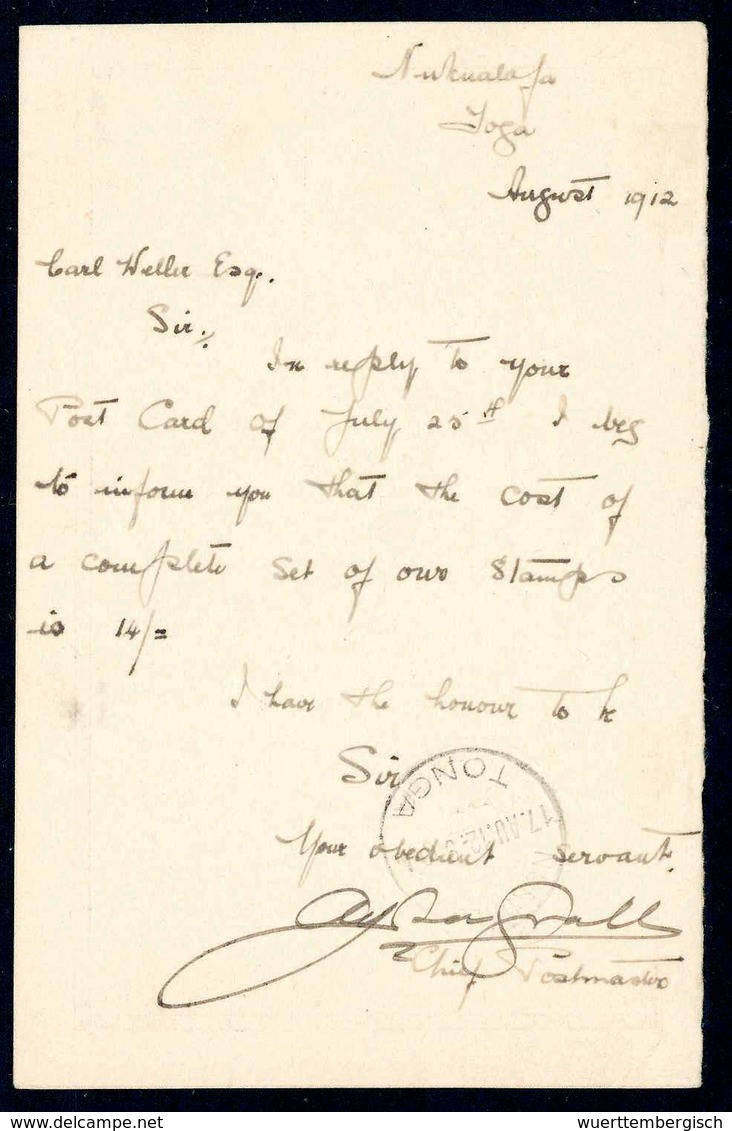 Nukualofa
Toga
August 1912
Carl Weller Esq.
Sir,
In reply to your
Post Card of July 25th I beg
to inform you that the cost of
a complete set of our stamps
is 14/=
I have the honour to be
Sir
TONGA
17.AU.12
Your obedient servant.
Chief Postmaster
www.delcampe.net
wuerttembergisch